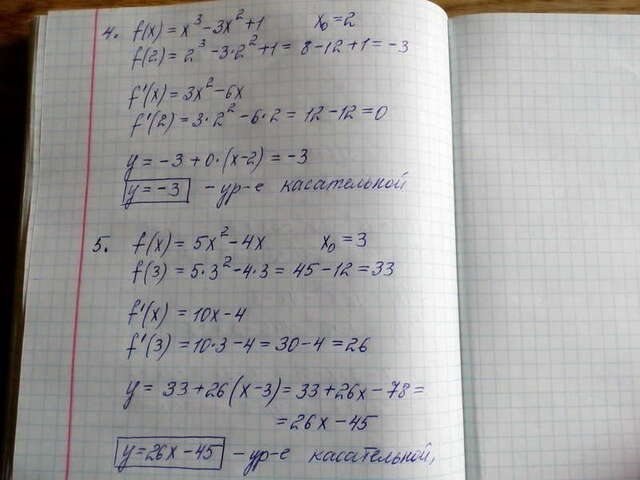 4. f(x) = x³ - 3x² + 1 x₀ = 2
f(2) = 2³ - 3·2² + 1 = 8 - 12 + 1 = -3
f'(x) = 3x² - 6x
f'(2) = 3·2² - 6·2 = 12 - 12 = 0
y = -3 + 0·(x-2) = -3
y = -3 - ур-е касательной
5. f(x) = 5x² - 4x x₀ = 3
f(3) = 5·3² - 4·3 = 45 - 12 = 33
f'(x) = 10x - 4
f'(3) = 10·3 - 4 = 30 - 4 = 26
y = 33 + 26(x-3) = 33 + 26x - 78 =
= 26x - 45
y = 26x - 45 - ур-е касательной,